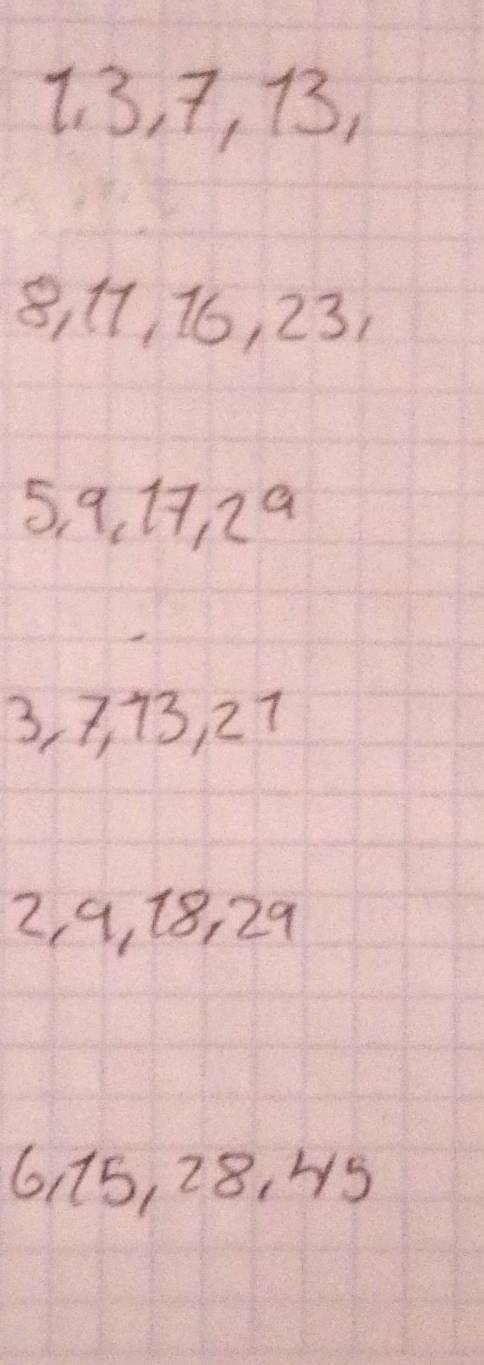 1,3,7,13,
8,11,16,23,
5,9,17,29
3,7,13,21
2,9,18,29
6,15,28,45